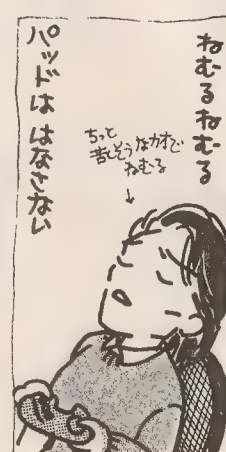 ねむるねむる
ちっと
苦しそうなカオで
ねむる
パッドは はなさない